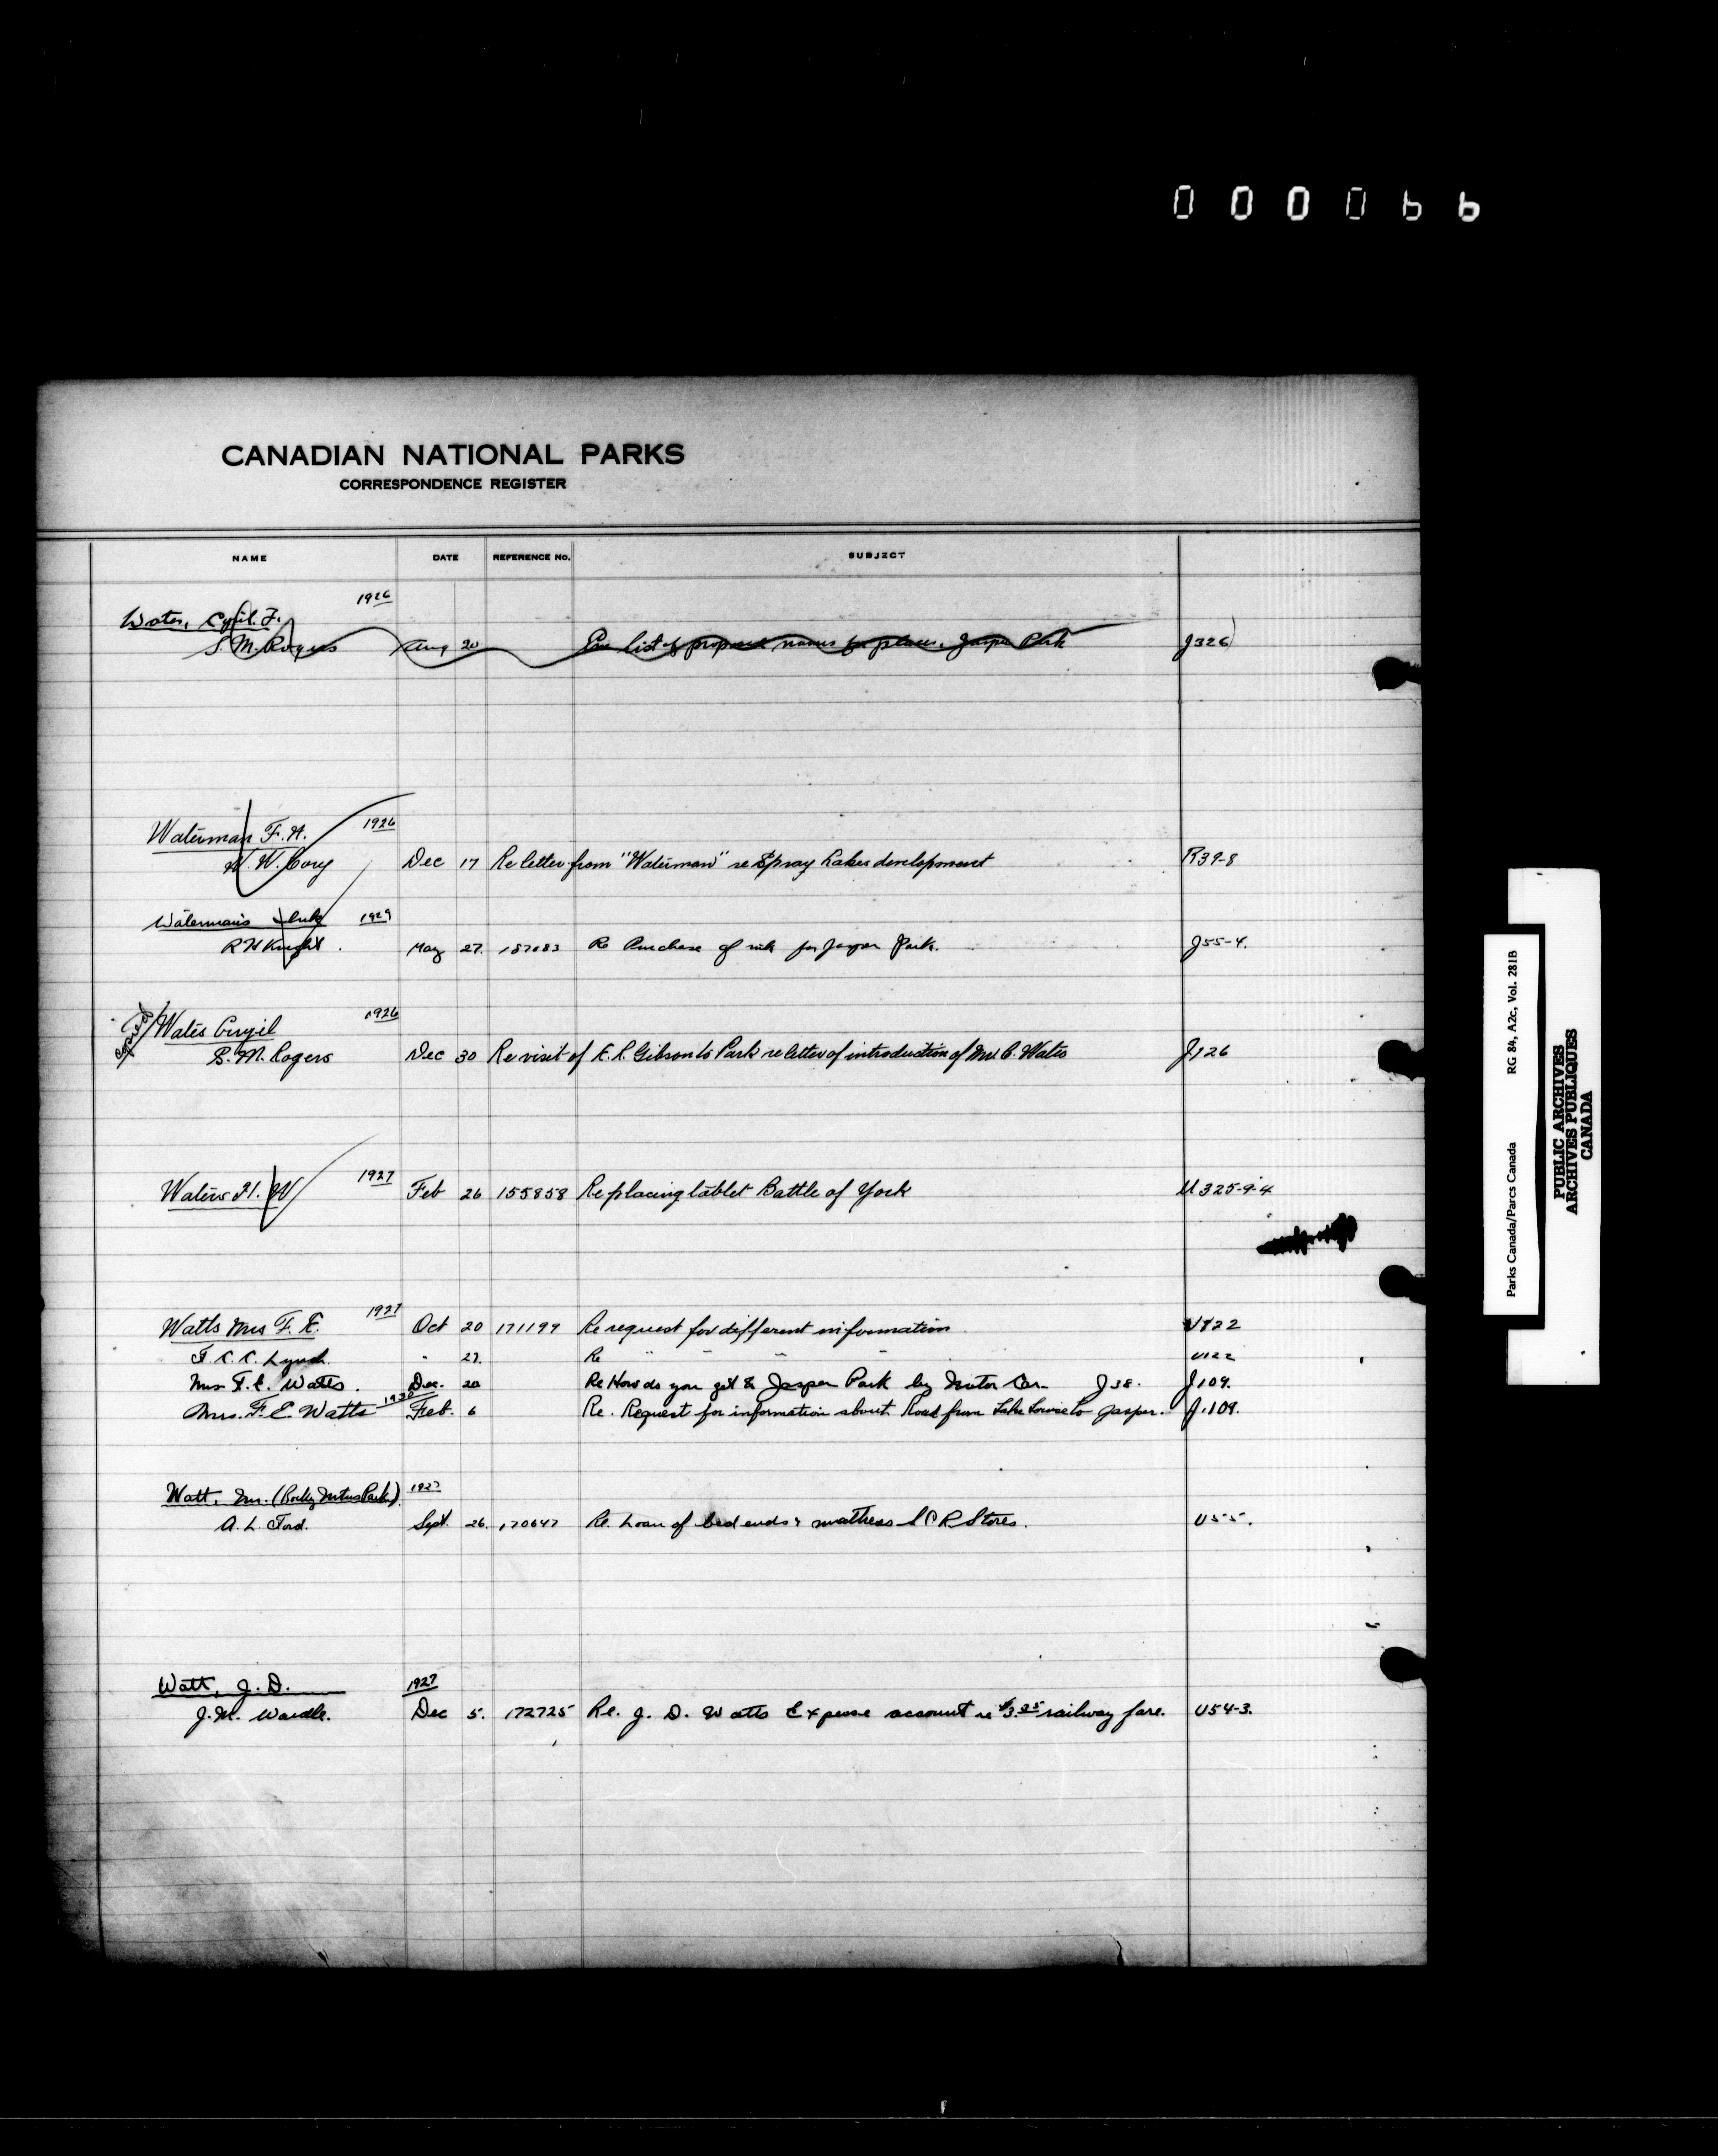 000066
CANADIAN NATIONAL PARKS
CORRESPONDENCE REGISTER
NAME DATE REFERENCE NO. SUBJECT
1926
Wates, Cyril. F.
S. M. Rogers Aug 20 list of proposed names for places. Jasper Park J326
Waterman F. H. 1926
W. W. Cory Dec 17 Re letter from "Waterman" re Spray Lakes development R39-8
Waterman's Ink 1929
R H Knight. May 27. 187083 Re Purchase of ink for Jasper Park. J55-4.
Copied Wates Cyril 1926
S. M. Rogers Dec 30 Re visit of Gibson to Park re letter of introduction of Mr C. Wates J126
Waters H. W 1927 Feb 26 155858 Re placing tablet Battle of York U325-9-4
Watts Mrs F. E. 1927 Oct 20 171199 Re request for different information U122
F. C. C. Lynch " 27. Re " " " " U122
Mrs F. E. Watts. Dec. 20 Re How do you get to Jasper Park by Motor Car J38. J109.
Mrs. F. E. Watts 1930 Feb. 6 Re. Request for information about Road from Lake Louise to Jasper. J.109.
Watt, Mr. (Rocky Mtns Park) 1927
A. L. Ford. Sept. 26. 170647 Re. Loan of bed ends & mattress Stores. U55.
Watt, J. D. 1927
J. M. Wardle. Dec 5. 172725 Re. J. D. Watts Expense account re $3.25 railway fare. U54-3.
Parks Canada/Parcs Canada RG 84, A2c, Vol. 281B
PUBLIC ARCHIVES
ARCHIVES PUBLIQUES
CANADA